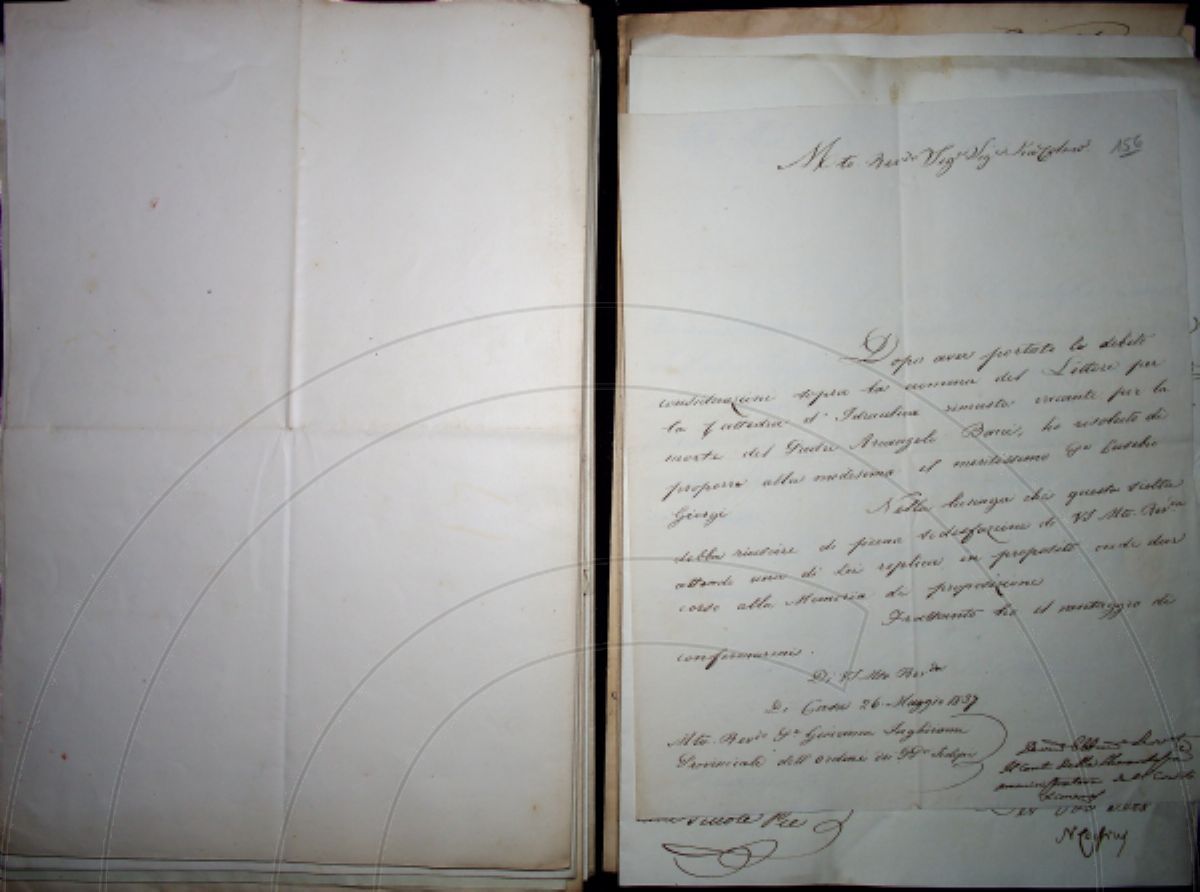 Mto. Revdo Sigr Sigr 156
Dopo aver portato le debite
considerazione sopra la nomina del Lettore per
la Cattedra d'Idraulica rimasta vacante per la
morte del Padre Arcangelo Bacci, ho risoluto di
proporre alla medesima il meritissimo Eusebio
Giorgi Nella lusinga che questa scelta
debba riuscire di piena sodisfazione di VS Mto. Revda
attendo una di lei replica in proposito onde dar
corso alla Memoria di proposizione
Frattanto ho il vantaggio di
confermarmi.
Di VS Mto Revda
Di Casa 26. Maggio 1837
Mto. Revdo Pe Giovanni Inghirami
Provinciale dell'ordine
Il Conte Della Gherardesca
Scuole Pie